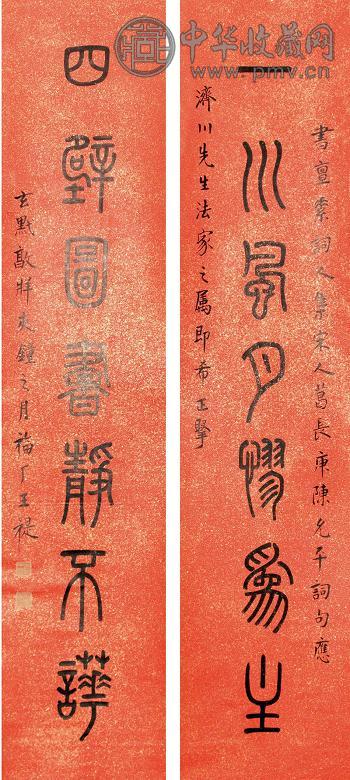 中华收藏网
www.pmv.cn
書亶素詞人集宋人葛長庚陳允平詞句應
一川風月憀為主
濟川先生法家之属即希正掔
四壁圖書靜不譁
玄黓敦牂夾鐘之月福厂王禔